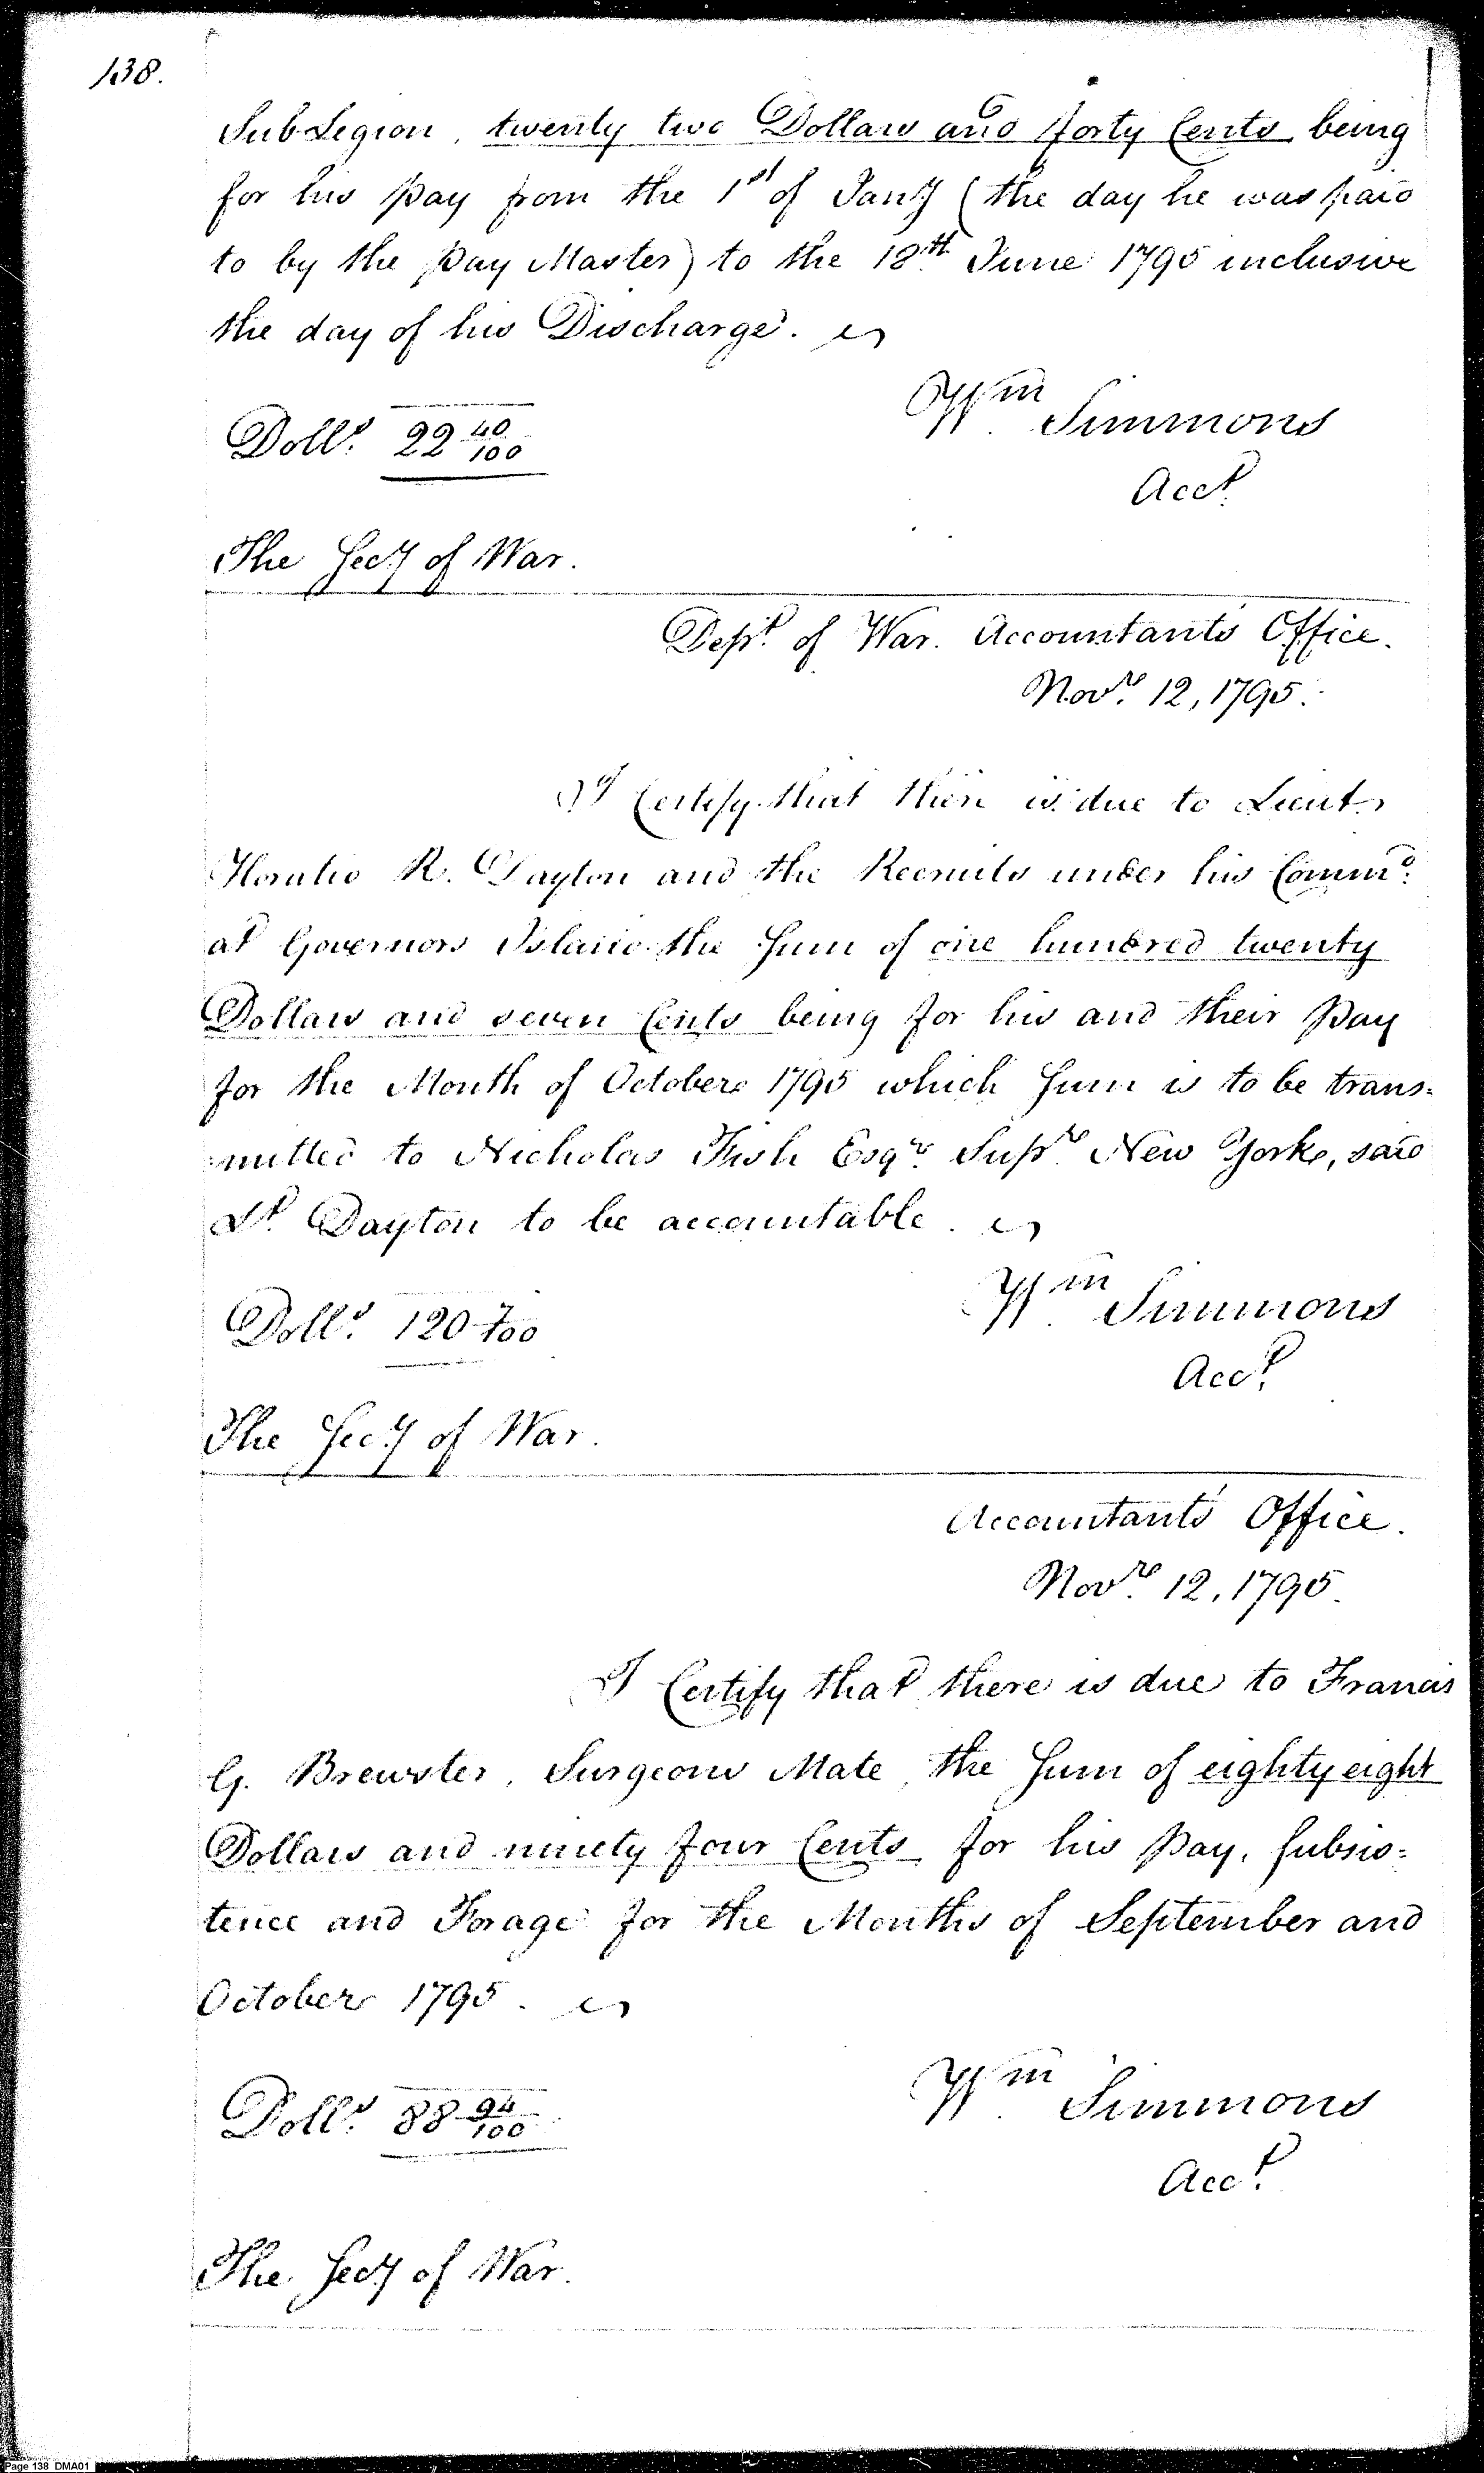 138.
Sub Legion, twenty two Dollars and forty Cents being
for his pay from the 1st of Jany (the day he was paid
to by the Pay Master) to the 18th June 1795 inclusive
the day of his Discharge.
Dolls. 22 40/100
Wm Simmons
Acct.
The Secy of War.
Dept. of War. Accountants Office.
Novr. 12, 1795.
I Certify that there is due to Lieut.
Horatio R. Dayton and the Recruits under his Commd.
at Governors Island the Sum of one hundred twenty
Dollars and seven Cents being for his and their Pay
for the Month of October 1795 which Sum is to be trans=
mitted to Nicholas Fish Esqr. Supr. New York, said
Lt. Dayton to be accountable.
Dolls. 120 7/100
Wm Simmons
Acct.
The Secy of War.
Accountants Office.
Novr. 12, 1795.
I Certify that there is due to Francis
G. Brewster, Surgeons Mate, the Sum of eighty eight
Dollars and ninety four Cents for his Pay, Subsis=
tence and Forage for the Months of September and
October 1795.
Dolls. 88 94/100
Wm Simmons
Acct.
The Secy of War.
Page 138 DMA01